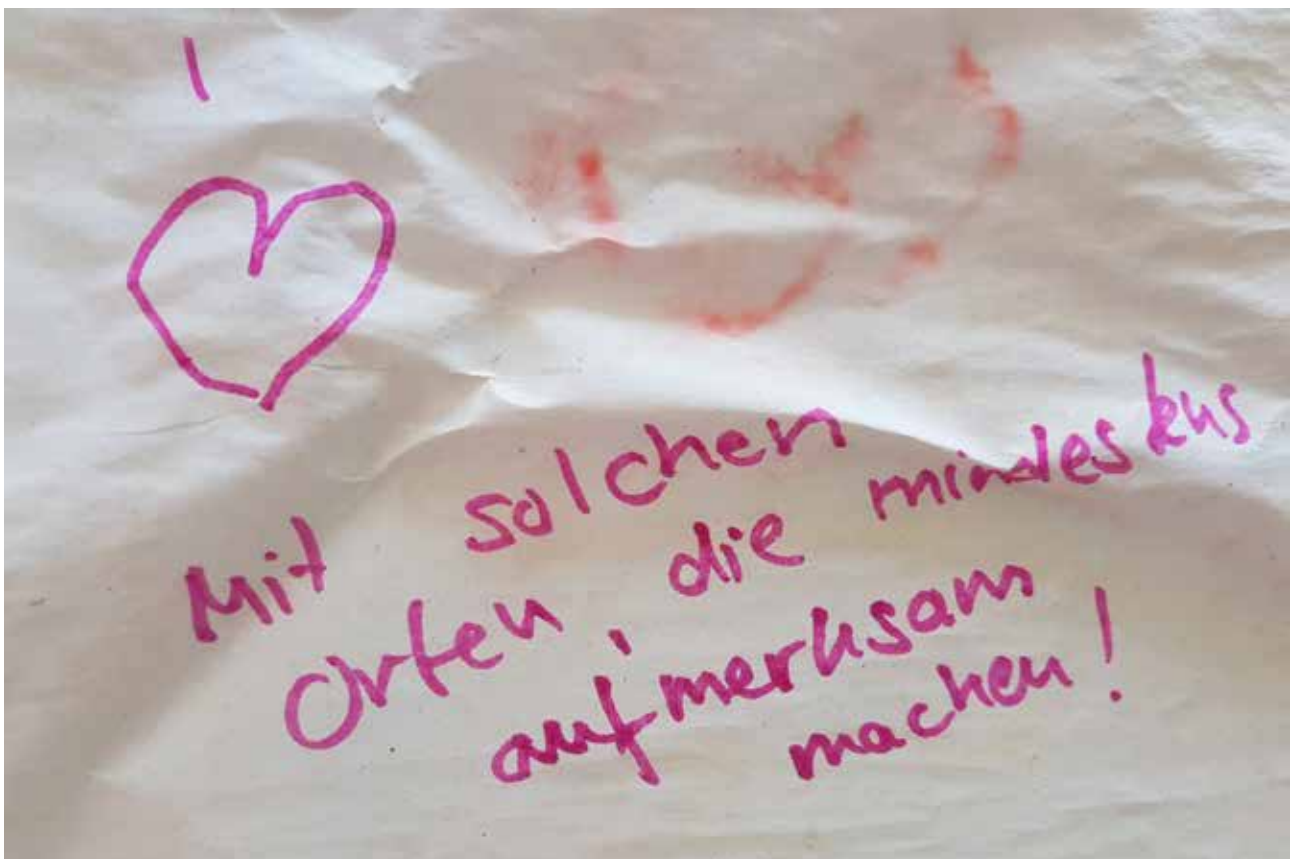 Mit solchen
Orten, die mindestens
aufmerksam
machen!